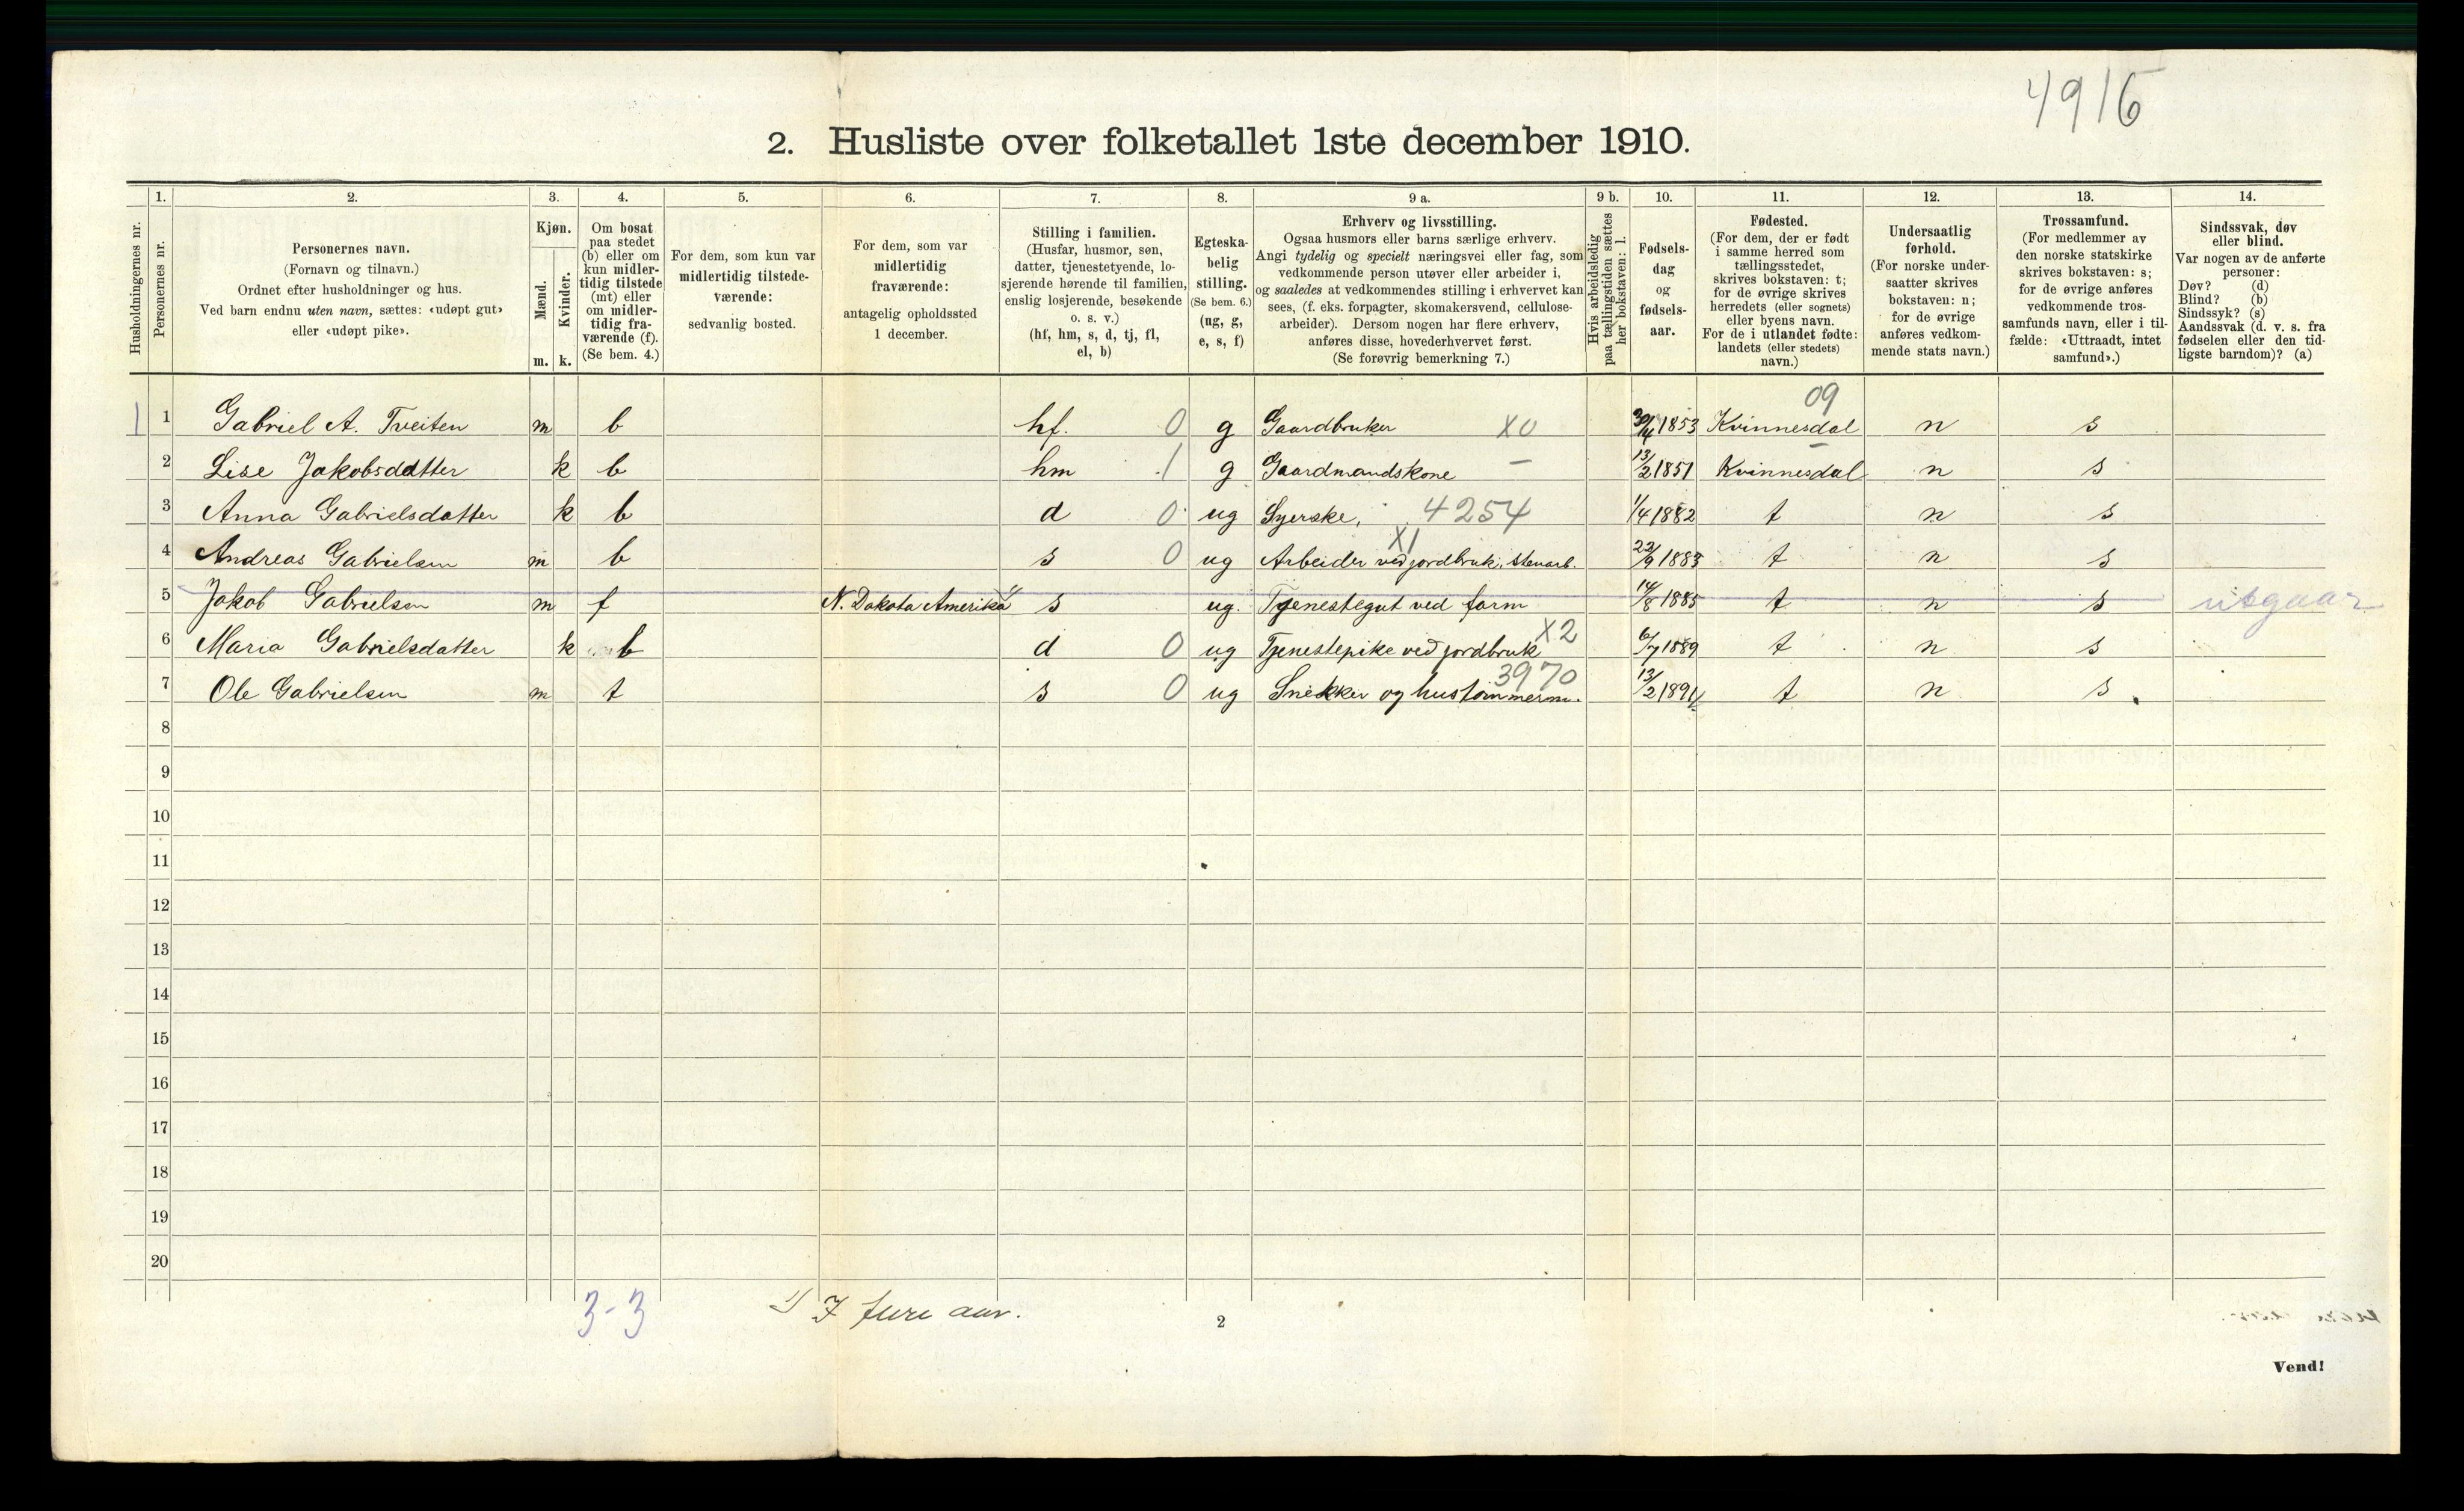 4916
2. Husliste over folketallet 1ste december 1910.
Husholdningernes nr.
1. Personernes nr.
2. Personernes navn. (Fornavn og tilnavn.) Ordnet efter husholdninger og hus. Ved barn endnu uten navn, sættes: «udøpt gut» eller «udøpt pike».
3. Kjøn. Mænd. m. Kvinder. k.
4. Om bosat paa stedet (b) eller om kun midlertidig tilstede (mt) eller om midlertidig fraværende (f). (Se bem. 4.)
5. For dem, som kun var midlertidig tilstedeværende: sedvanlig bosted.
6. For dem, som var midlertidig fraværende: antagelig opholdssted 1 december.
7. Stilling i familien. (Husfar, husmor, søn, datter, tjenestetyende, losjerende hørende til familien, enslig losjerende, besøkende o. s. v.) (hf, hm, s, d, tj, fl, el, b)
8. Egteskabelig stilling. (Se bem. 6.) (ug, g, e, s, f)
9 a. Erhverv og livsstilling. Ogsaa husmors eller barns særlige erhverv. Angi tydelig og specielt næringsvei eller fag, som vedkommende person utøver eller arbeider i, og saaledes at vedkommendes stilling i erhvervet kan sees, (f. eks. forpagter, skomakersvend, cellulosearbeider). Dersom nogen har flere erhverv, anføres disse, hovederhvervet først. (Se forøvrig bemerkning 7.)
9 b. Hvis arbeidsledig paa tællingstiden sættes her bokstaven: l.
10. Fødselsdag og fødselsaar.
11. Fødested. (For dem, der er født i samme herred som tællingsstedet, skrives bokstaven: t; for de øvrige skrives herredets (eller sognets) eller byens navn. For de i utlandet fødte: landets (eller stedets) navn.)
12. Undersaatlig forhold. (For norske undersaatter skrives bokstaven: n; for de øvrige anføres vedkommende stats navn.)
13. Trossamfund. (For medlemmer av den norske statskirke skrives bokstaven: s; for de øvrige anføres vedkommende trossamfunds navn, eller i tilfælde: «Uttraadt, intet samfund».)
14. Sindssvak, døv eller blind. Var nogen av de anførte personer: Døv? (d) Blind? (b) Sindssyk? (s) Aandssvak (d. v. s. fra fødselen eller den tidligste barndom)? (a)
09
1 1 Gabriel A. Tveiten m b hf. 0 g Gaardbruker X0 30/4 1853 Kvinnesdal n s
2 Lise Jakobsdatter k b hm 1 g Gaardmandskone – 13/2 1851 Kvinnesdal n s
3 Anna Gabrielsdatter k b d 0 ug Syerske, 4254 1/4 1882 t n s
4 Andreas Gabrielsen m b s 0 ug Arbeider ved jordbruk, stenarb. X1 22/9 1883 t n s
5 Jakob Gabrielsen m f N. Dakota Amerika 1) s ug. Tjenestegut ved farm 14/8 1885 t n s utgaar
6 Maria Gabrielsdatter k b d 0 ug Tjenestepike ved jordbruk X2 6/7 1889 t n s
7 Ole Gabrielsen m t s 0 ug Snekker og hustømmerm. 3970 13/2 1891 t n s
8
9
10
11
12
13
14
15
16
17
18
19
20
3-3
1) I fire aar.
2
Vend!